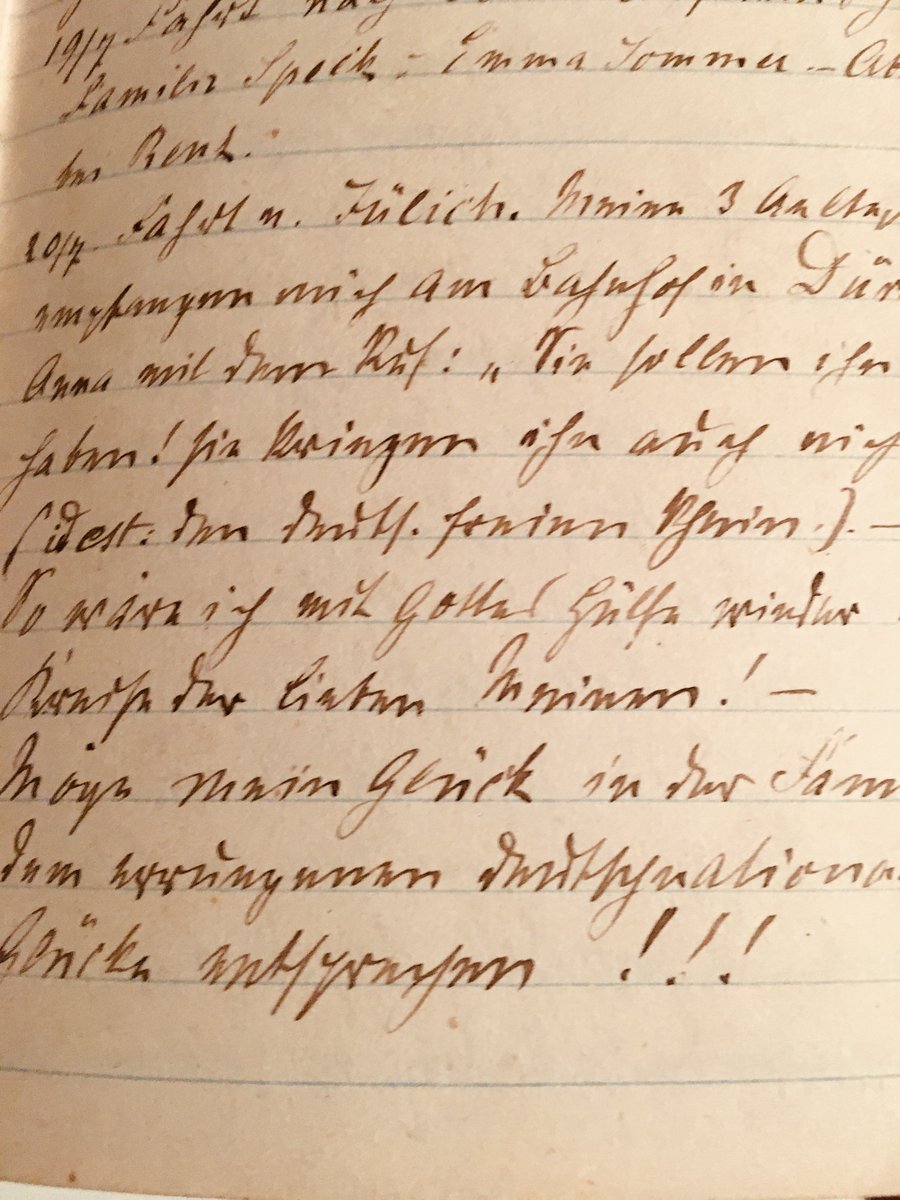 19/7 Fahrt nach
Familie Speck - Emma Sommer. -
bei Benk.
20/7. Fahrt n. Jülich. Meine 3
empfangen mich am Bahnhof in Dür
Anna mit dem Ruf: „Sie sollen ihn
haben! sie kriegen ihn auch nich
(id est: den deuts. freien Rhein.). -
So wäre ich mit Gottes Hülfe wieder
Kreise der lieben Meinen! -
Möge mein Glück in der Fam
dem errungenen deutschnationa
Glücke entsprechen !!!